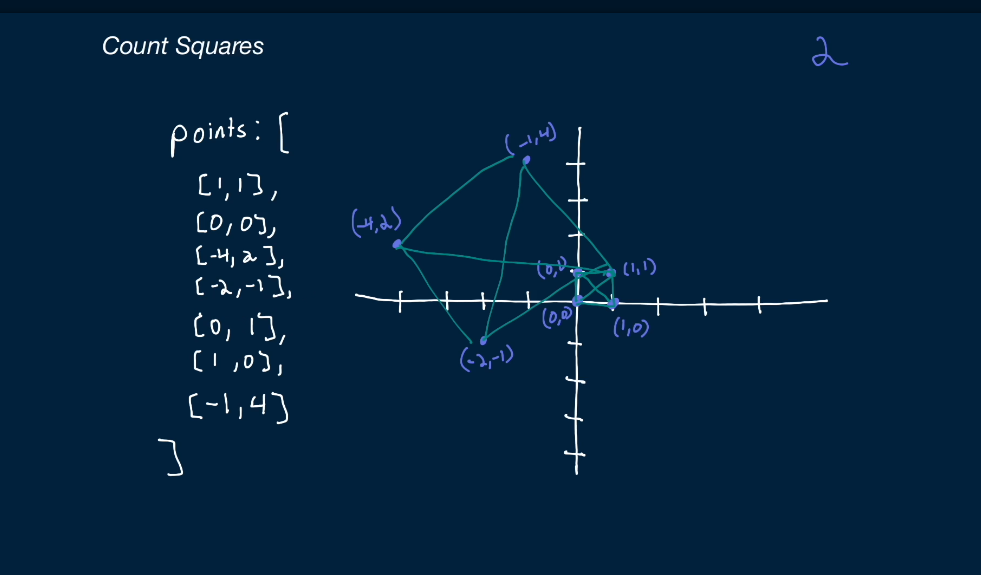 Count Squares
2
points: [
[1,1],
[0,0],
[-4,2],
[-2,-1],
[0,1],
[1,0],
[-1,4]
]
(-1,4)
(-4,2)
(0,1)
(1,1)
(0,0)
(1,0)
(-2,-1)